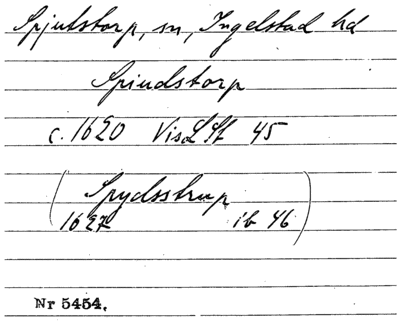 Spjutstorp, sn, Ingelstad hd
Spiudstorp
c. 1620 Vis L St 45
(Spydsstrup
1627 ib 46)
Nr 5454.